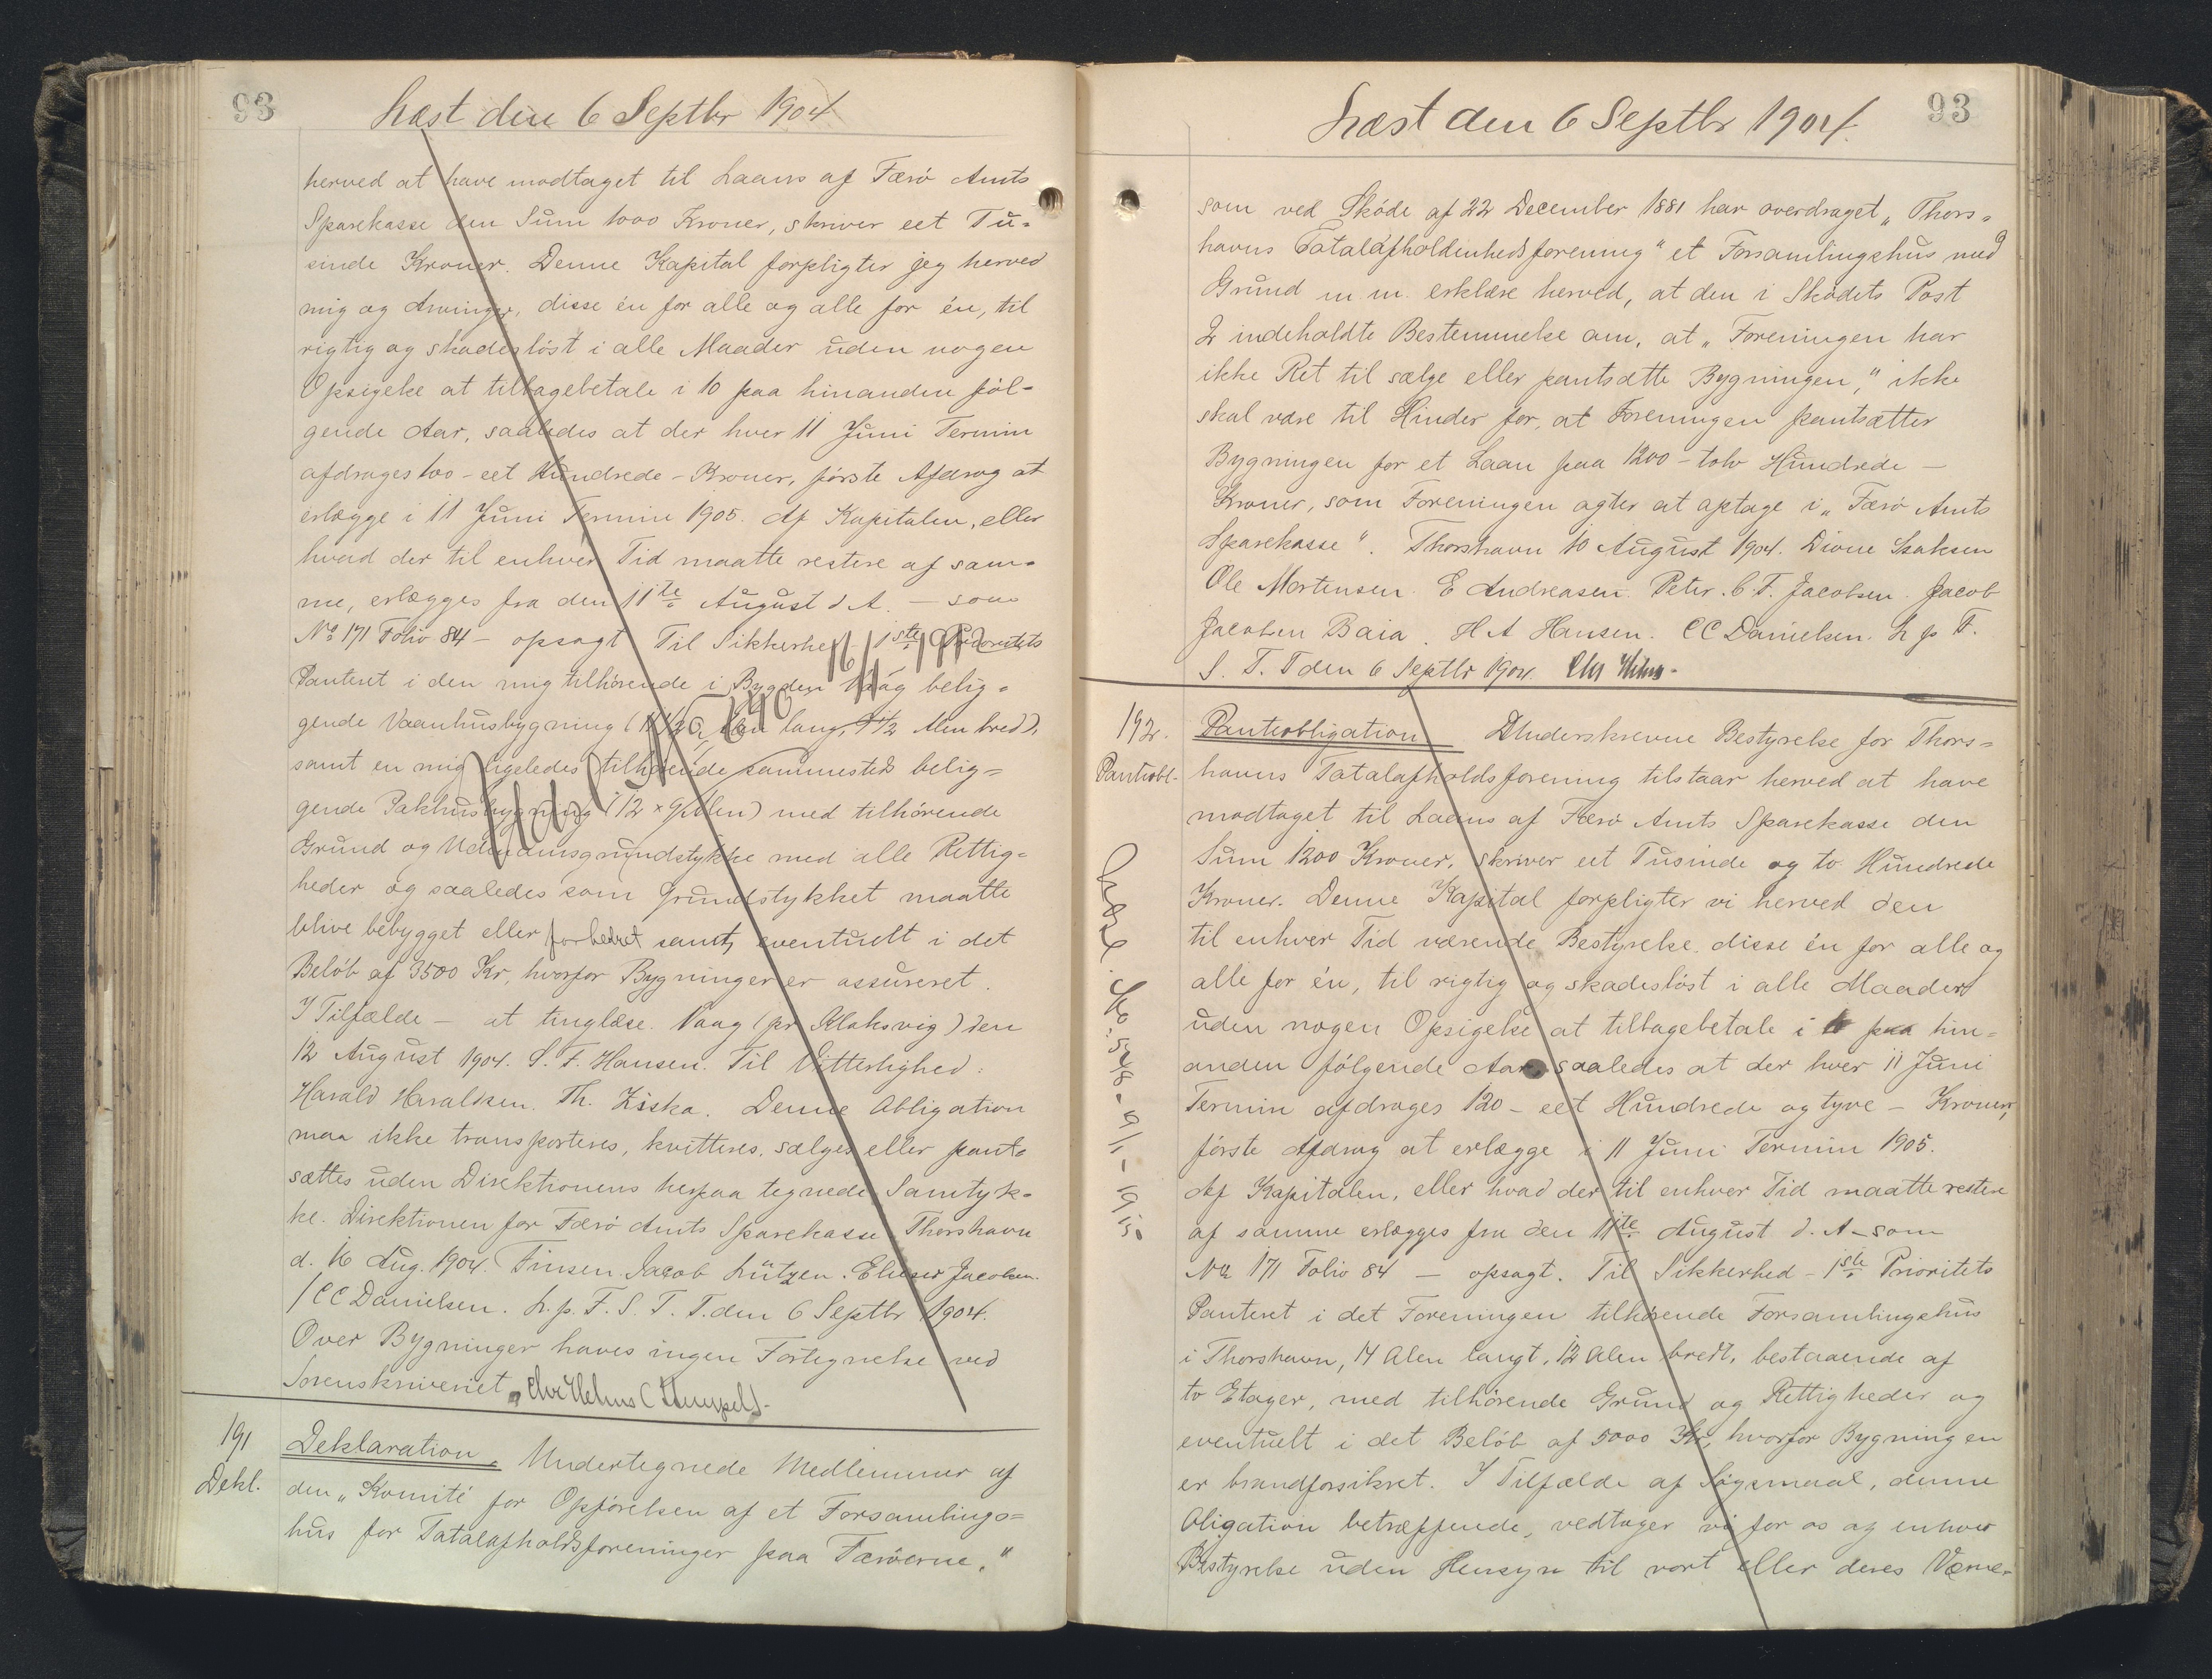 93
Læst den 6 Septbr 1904
herved at have modtaget til Laans af Færö Amts
Sparekasse den Sum 1000 Kroner, skriver eet Tu-
sinde Kroner. Denne Kapital forpligter jeg herved
mig og Arvinger, disse én for alle og alle for én, til
rigtig og skadeslöst i alle Maader uden nogen
Opsigelse at tilbagebetale i 10 paa hinanden föl-
gende Aar, saaledes at der hver 11 Juni Termin
afdrages 100 - eet Hundrede - Kroner, förste Afdrag at
erlægge i 11 Juni Termin 1905. Af Kapitalen, eller
hvad der til enhver Tid maatte restere af sam-
me, erlægges fra den 11te August d. A. - som
No 171 Folio 84 - opsagt Til Sikkerhed - 1ste Prioritets
Panteret i den mig tilhörende i Bygden Vaag belig-
gende Vaanhusbygning ( Alen lang, Alen bred),
samt en mig ligeledes tilhörende sammesteds belig-
gende Pakhusbygning (12 x 9 Alen) med tilhörende
Grund og Udendomsgrundstykke med alle Rettig-
heder og saaledes som Grundstykket maatte
blive bebygget eller forbedret samt, eventuelt i det
Belöb af 3500 Kr, hvorfor Bygninger er assureret.
I Tilfælde - at tinglæse. Vaag (pr Klaksvig) den
12 August 1904. S. F. Hansen. Til Vitterlighed:
Harald Haraldsen. Th. Ziska. Denne Obligation
maa ikke transporteres, kvitteres, sælges eller pant-
sættes uden Direktionens herpaa tegnede Samtyk-
ke. Direktionen for Færö Amts Sparekasse Thorshavn
d. 16 Aug. 1904. Finsen. Jacob Lützen. Elieser Jacobsen.
/ CC Danielsen. L. p. F. S. T. T. den 6 Septbr 1904.
Over Bygninger haves ingen Fortegnelse ved
Sorenskriveriet.
191
Dekl.
Deklaration. Undertegnede Medlemmer af
den "Komité for Opförelsen af et Forsamlings-
hus for Totalafholdsforeninger paa Færöerne,"
Læst den 6 Septbr 1904.
93
som ved Sköde af 22 December 1881 har overdraget "Thors-
havns Totalafholdenhedsforening" et Forsamlingshus med
Grund m. m. erklære herved, at den i Sködets Post
2 indeholdte Bestemmelse om, at "Foreningen har
ikke Ret til sælge eller pantsætte Bygningen," ikke
skal være til Hinder for, at Foreningen pantsætter
Bygningen for et Laan paa 1200 - tolv Hundrede -
Kroner, som Foreningen agter at optage i "Færö Amts
Sparekasse". Thorshavn 10 August 1904. Dione Isaksen
Ole Mortensen. E Andreasen. Peter. C. F. Jacobsen. Jacob
Jacobsen Baia. H A Hansen. CC Danielsen. L p F.
S. T. T den 6 Septbr 1904.
192.
Panteobl.
Panteobligation Underskrevne Bestyrelse for Thors-
havns Totalafholdsforening tilstaar herved at have
modtaget til Laans af Færö Amts Sparekasse den
Sum 1200 Kroner, skriver eet Tusinde og to Hundrede
Kroner. Denne Kapital forpligter vi herved den
til enhver Tid værende Bestyrelse, disse én for alle og
alle for én, til rigtig og skadeslöst i alle Maader
uden nogen Opsigelse at tilbagebetale i 10 paa hin-
anden fölgende Aar, saaledes at der hver 11 Juni
Termin afdrages 120 - eet Hundrede og tyve - Kroner,
förste Afdrag at erlægge i 11 Juni Termin 1905.
Af Kapitalen, eller hvad der til enhver Tid maatte restere
af samme erlægges fra den 11te August d. A - som
No 171 Folio 84 - opsagt. Til Sikkerhed - 1ste Prioritets
Panteret i det Foreningen tilhörende Forsamlingshus
i Thorshavn, 14 Alen langt, 12 Alen bredt, bestaaende af
to Etager, med tilhörende Grund og Rettigheder og
eventuelt i det Belöb af 5000 Kr, hvorfor Bygningen
er brandforsikret. I Tilfælde af Sögsmaal, denne
Obligation betræffende, vedtager vi for os og enhver
Bestyrelse uden Hensyn til vort eller deres Værne-